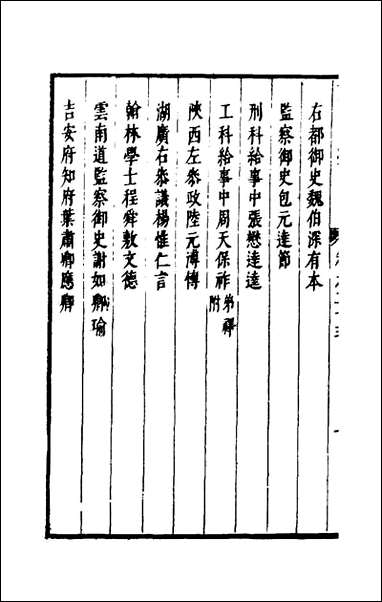 右都御史魏伯深有本
監察御史包元達節
刑科給事中張懋達逵
工科給事中周天保祚弟禪附
陝西左叅政陸元博傳
湖廣右叅議楊惟仁言
翰林學士程舜敷文德
雲南道監察御史謝如卿瑜
吉安府知府葉肅卿應